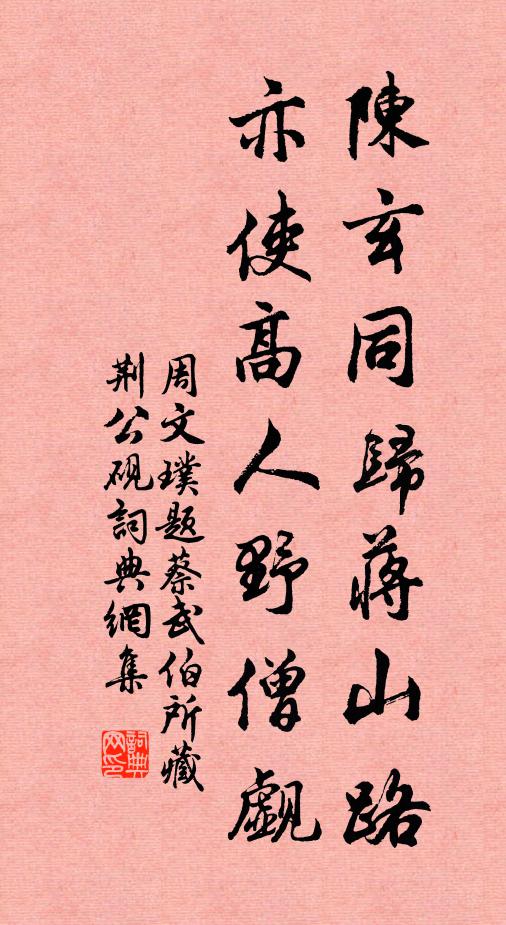 陳玄同歸蔣山路
亦使高人野僧覰
周文璞題蔡武伯所藏
荆公硯詞典網集
詞典網印